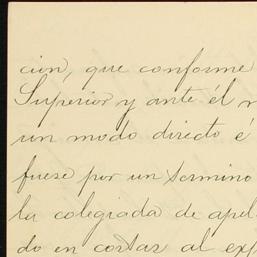 cion, que conforme
Superior y ante él
un modo directo é
fuese por un termino
la colegiada de apel
do en costas al